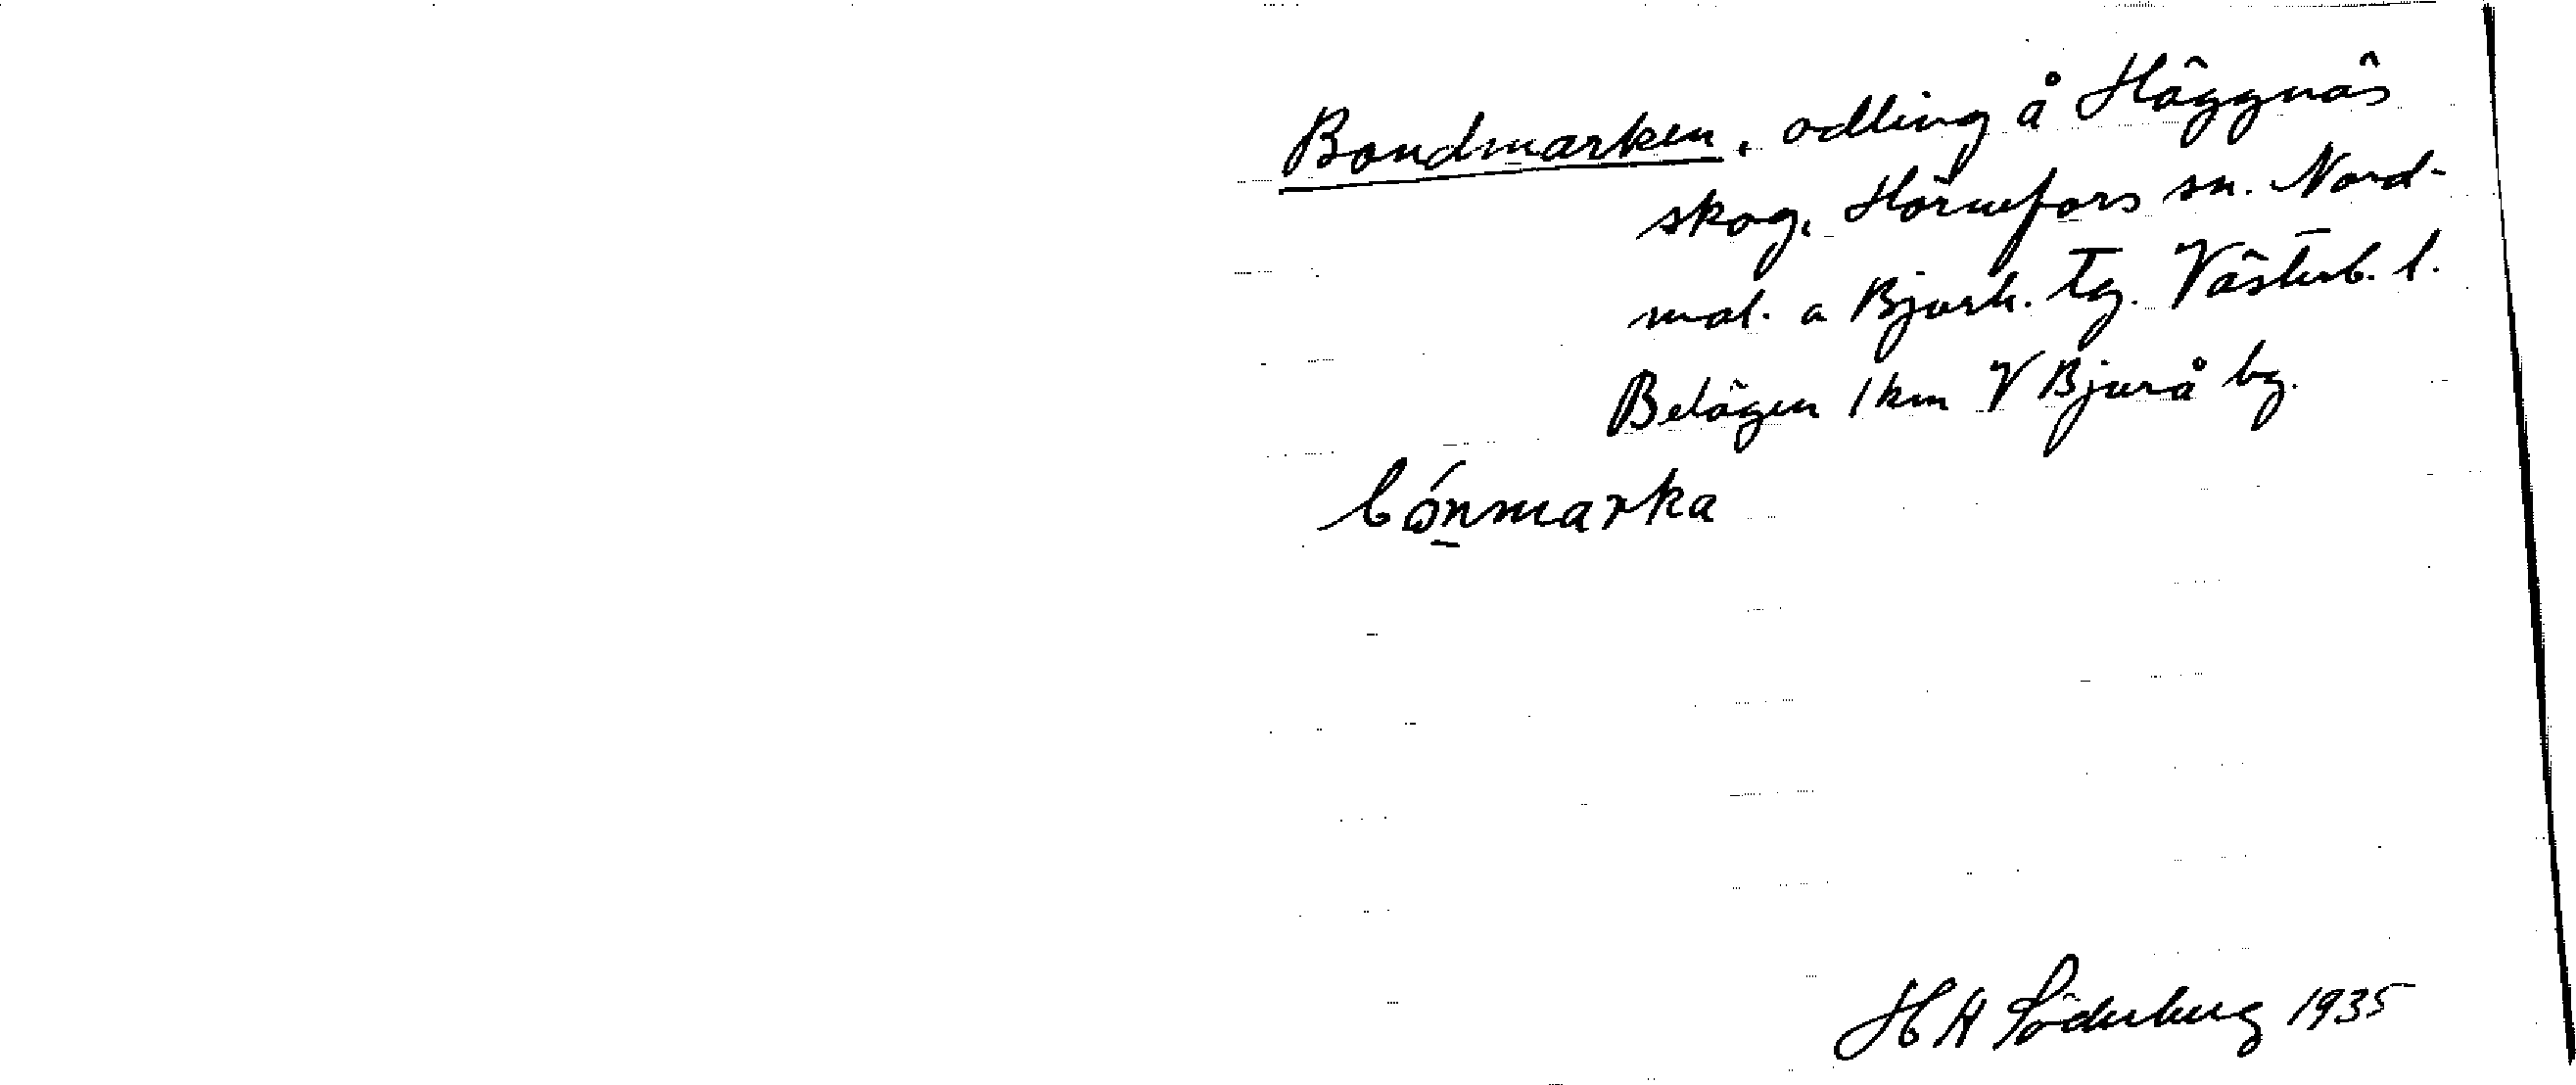 Bondmarken, odling å Häggnäs
skog, Hörnefors sn. Nord-
mal. a Bjurh. Tg. Västerb. l.
Belägen 1 km V Bjurå bg.
bónmarka
H A Söderberg 1935